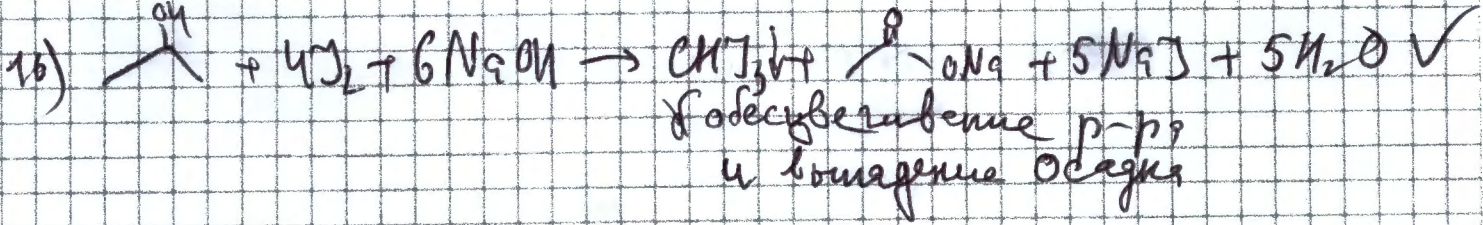 OH
16) + 4J₂ + 6NaOH → CHJ₃↓ + O ONa + 5NaJ + 5H₂O ✓
обесцвечивание р-ра
и выпадение осадка